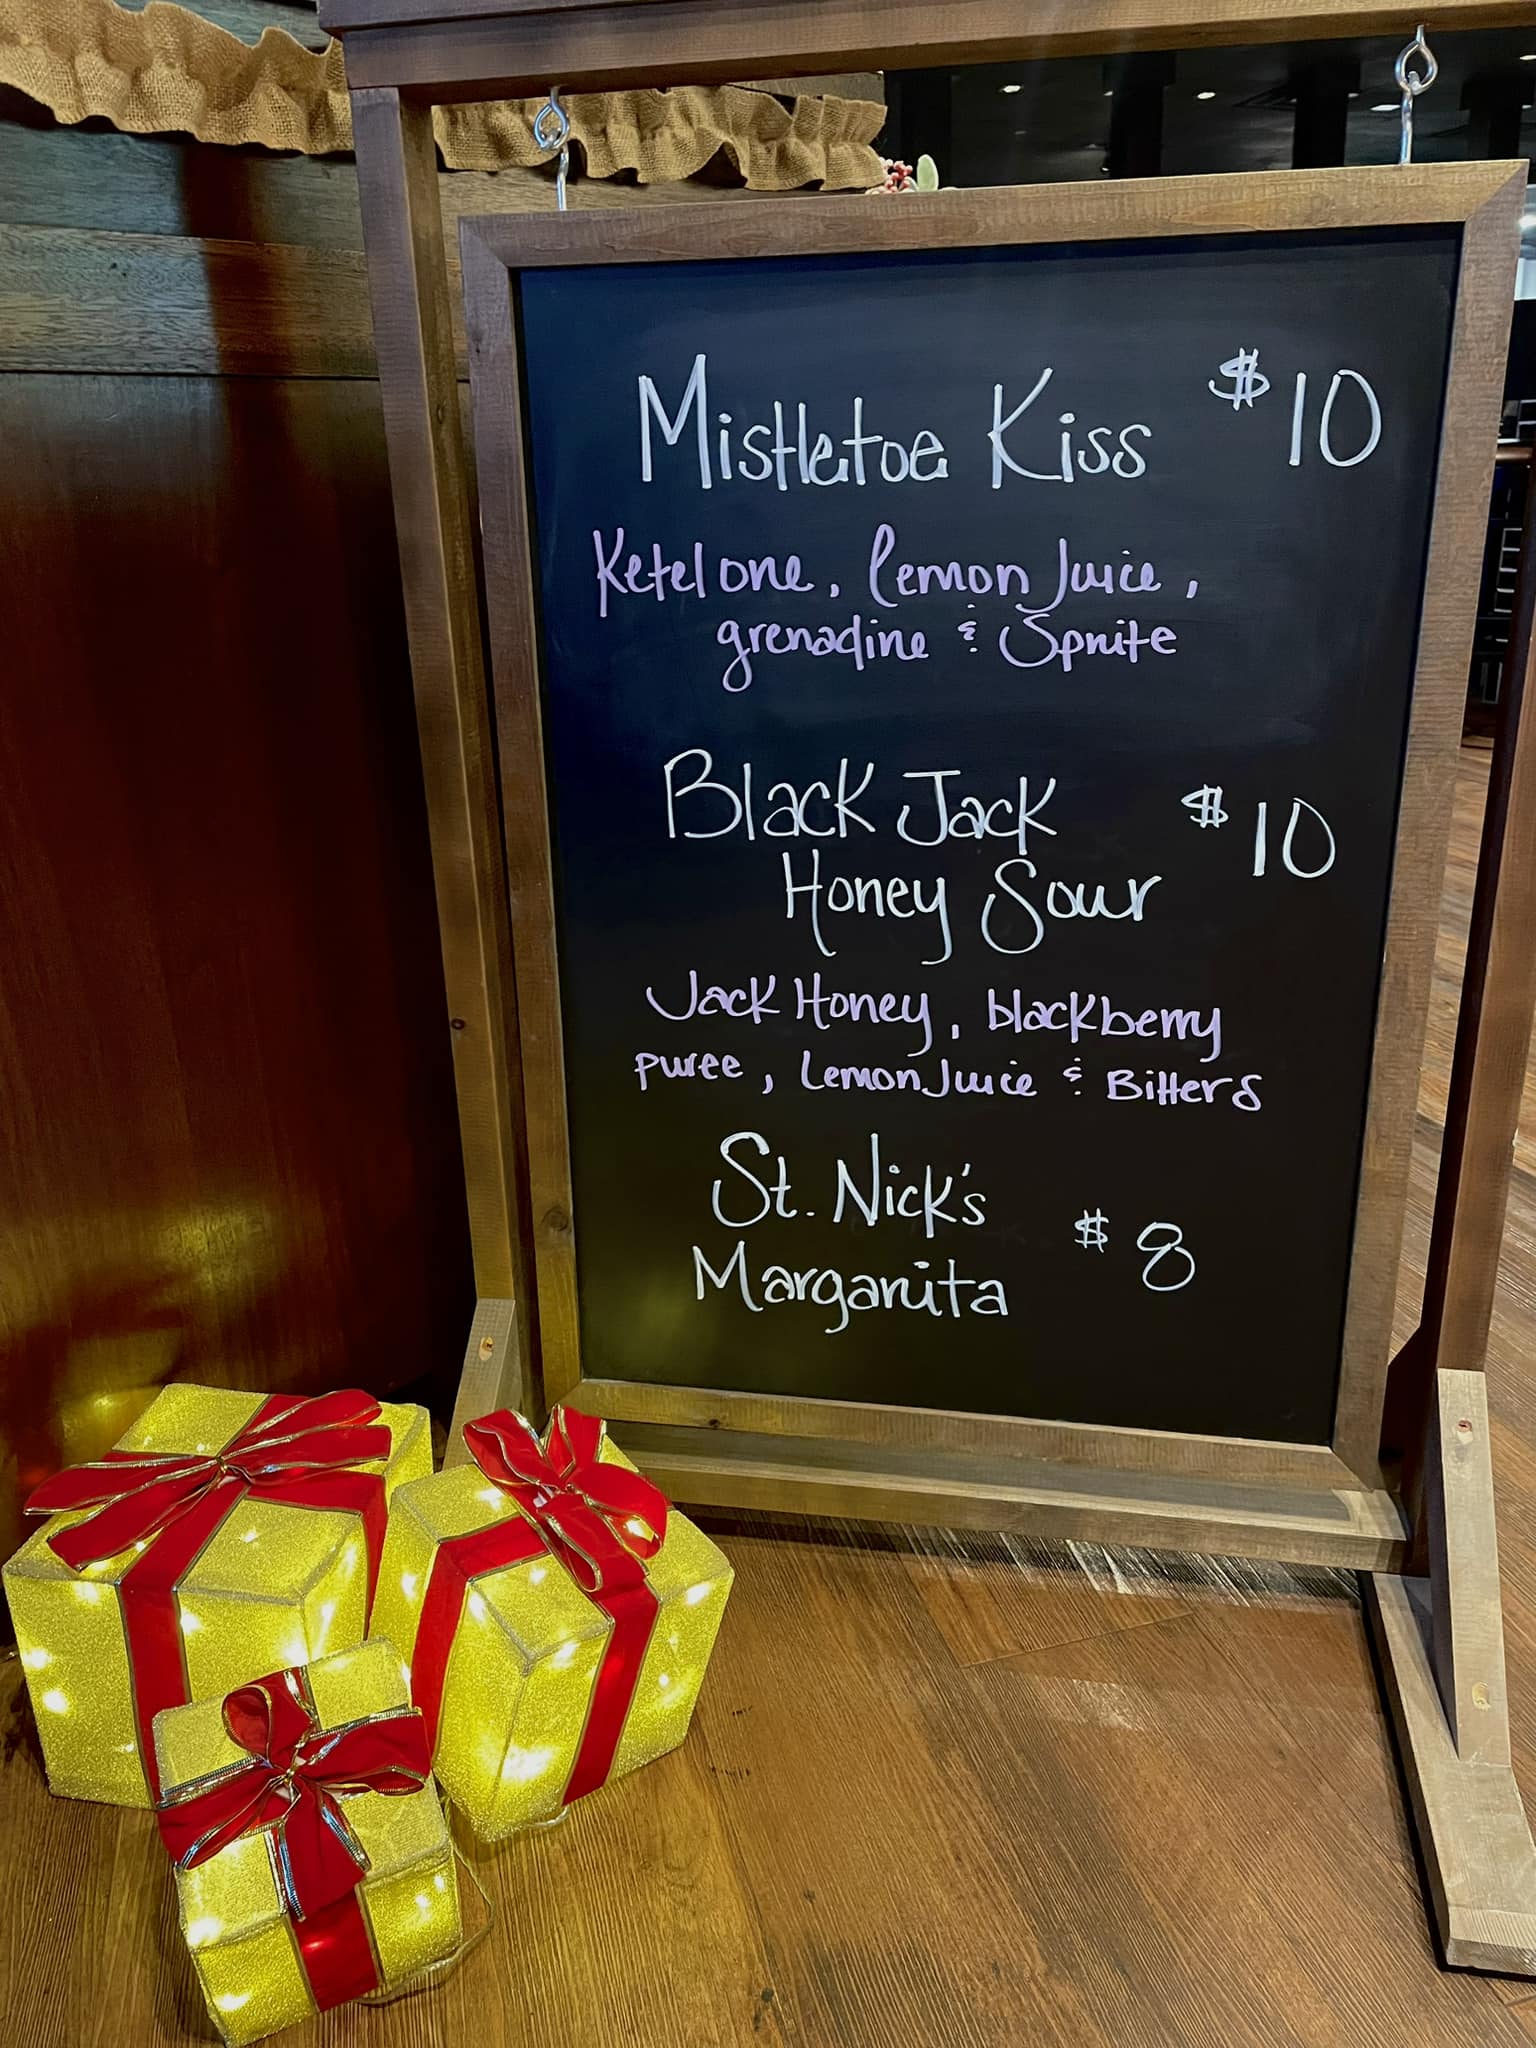 Mistletoe Kiss $10
Ketel one, lemon Juice,
grenadine & Sprite
Black Jack $10
Honey Sour
Jack Honey, blackberry
puree, Lemon Juice & Bitters
St. Nick's
Margarita $8